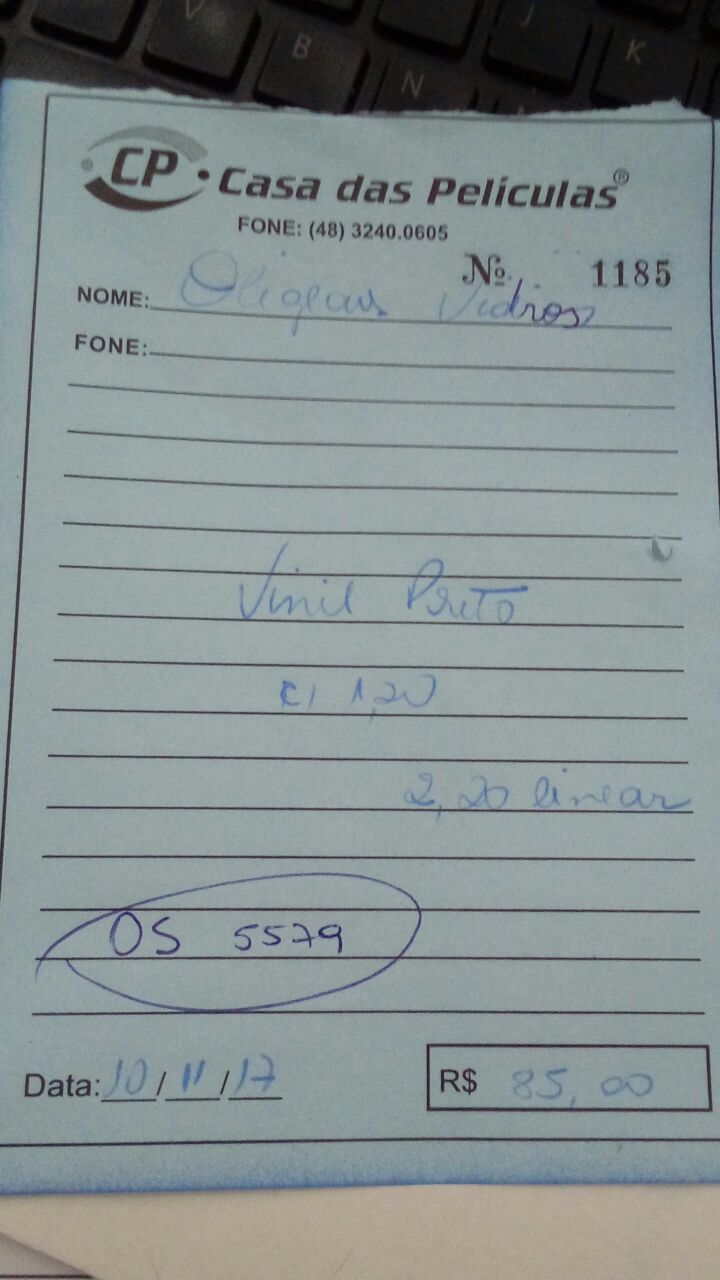 CP • Casa das Películas®
FONE: (48) 3240.0605
Nº 1185
NOME: Vidros
FONE:
Vinil Preto
c/ 1,20
2,20 linear
OS 5579
Data: 10/11/17
R$ 85,00
V B N J K